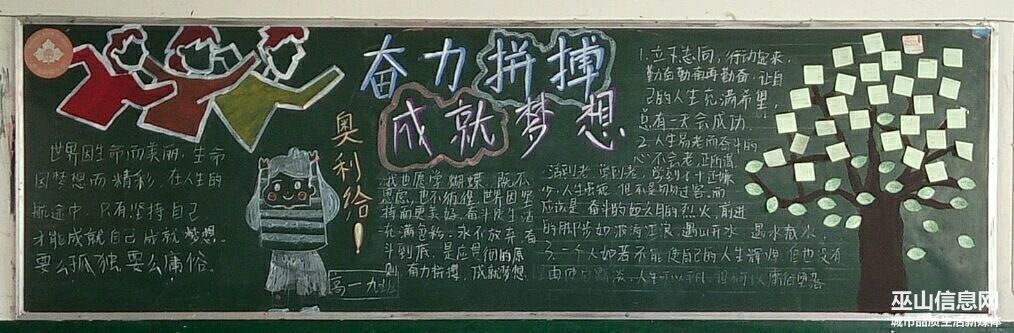 奋力拼搏
成就梦想
奥利给！
世界因生命而美丽，生命
因梦想而精彩，在人生的
旅途中，只有坚持自己
才能成就自己成就梦想。
要么孤独要么庸俗。
高一九
我也愿学蝴蝶，
世界因坚
持而更美好，奋斗的生活
充满
永不放弃奋
斗到底，是应贯彻的原
则，奋力拼搏，成就梦想
1.立下志向，行动起来，
勤奋勤奋再勤奋，让自
己的人生充满希望，
总有一天会成功。
2.人生易老而奋斗的
心不会老，正所谓
活到老，学到老，学到
人生虽短，但不是匆匆过客，而
应该是奋斗的如火的烈火，前进
的脚步如波涛江浪，遇山开水，遇水
3.一个人如若不能使自己的人生辉煌，但也没有
由
人生可以平凡，但
巫山信息网
城市品质生活新媒体